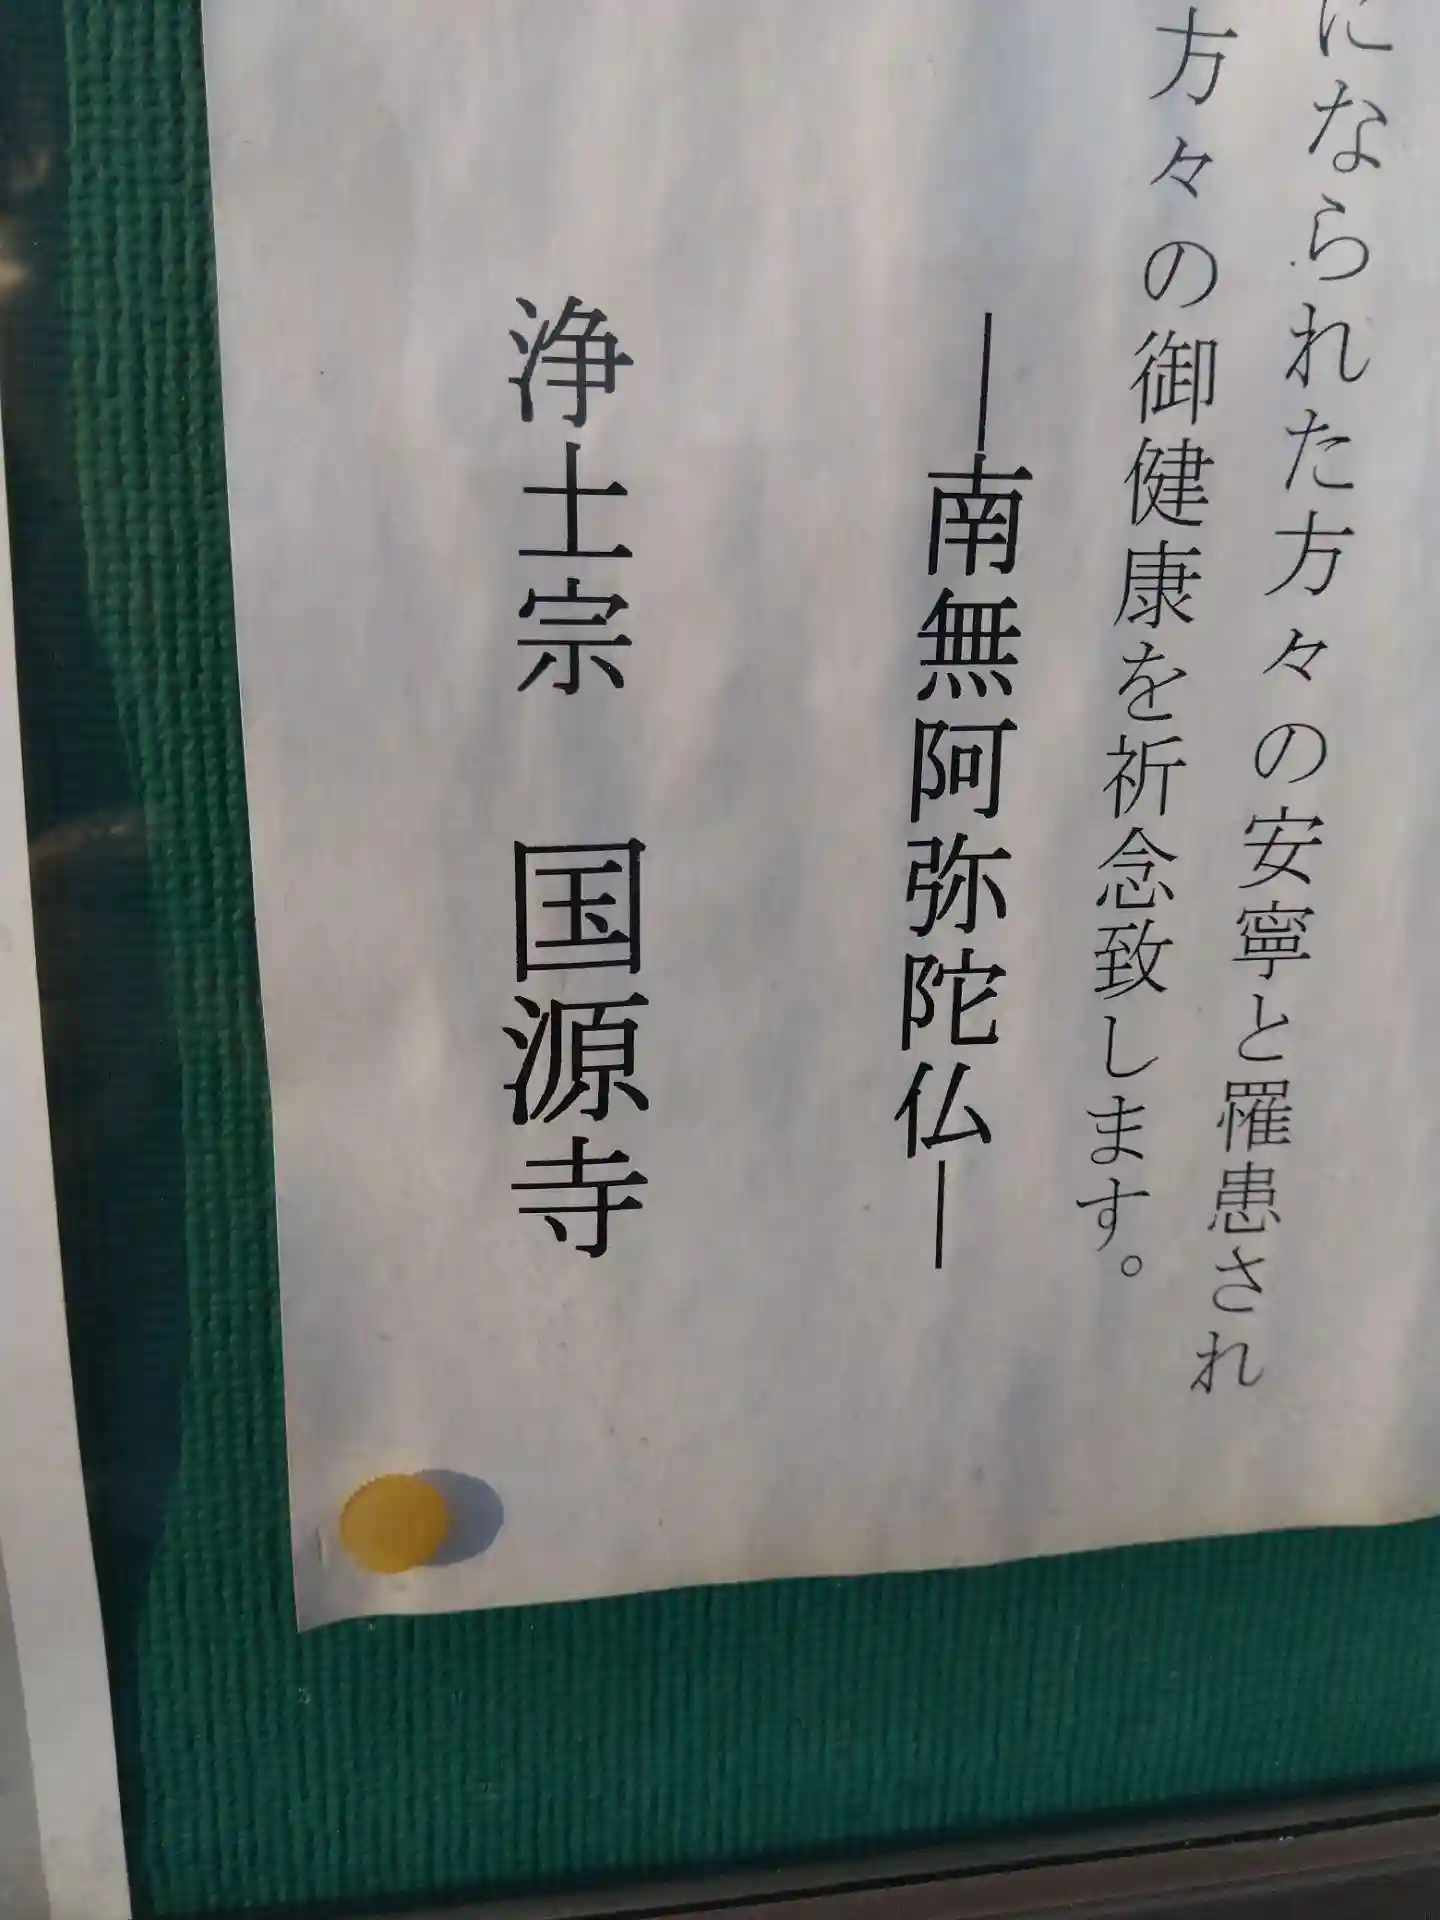 になられた方々の安寧と罹患され
方々の御健康を祈念致します。
―南無阿弥陀仏―
浄土宗　国源寺